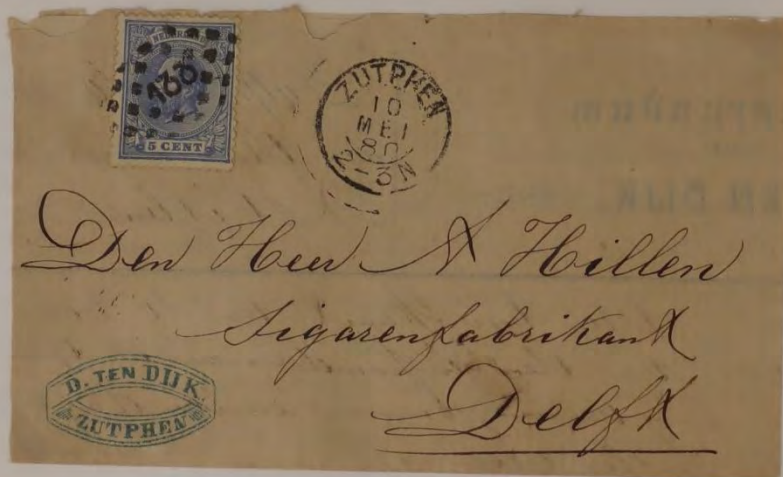 133
5 CENT
ZUTPHEN
10
MEI
80
2-3N
Den Heer A Hillen
Sigarenfabrikant
Delft
D. TEN DIJK.
ZUTPHEN